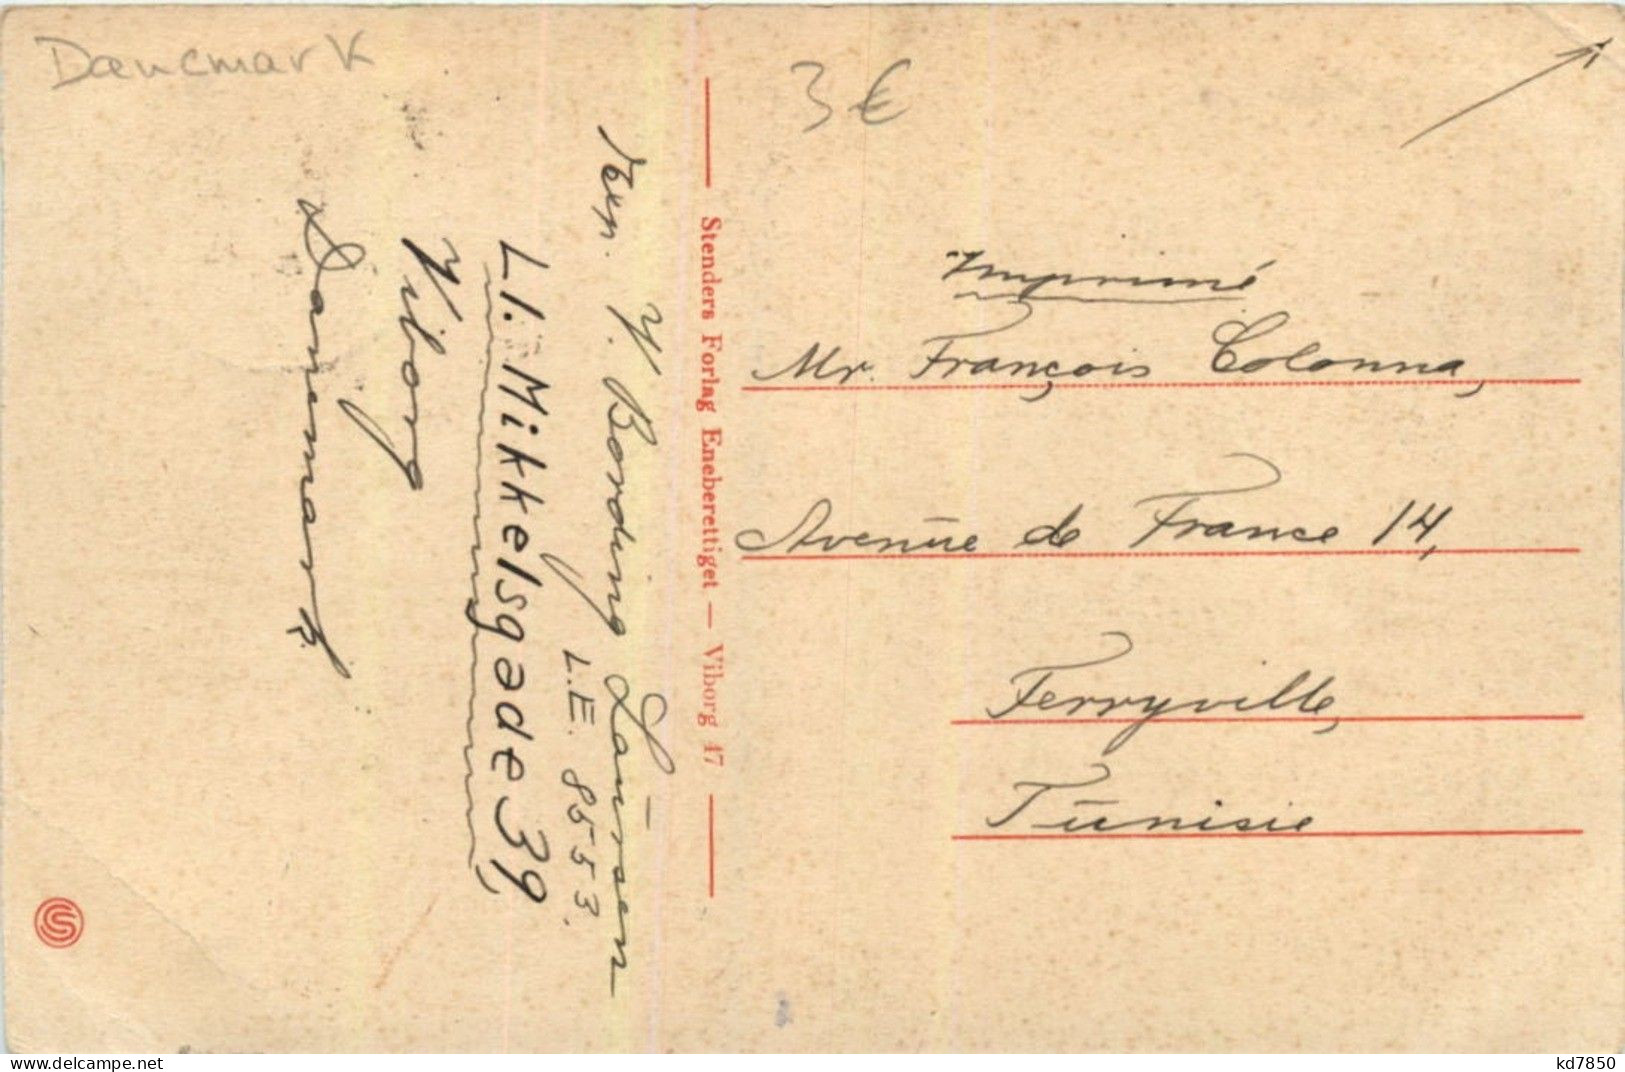 Daenemark
3 €
V. Bording Laursen
L.E. 8553.
Ll. Mikkelsgade 39,
Viborg
Danemark.
Stenders Forlag Eneberettiget — Viborg 47
Imprimé
Mr. François Colonna,
Avenue de France 14,
Ferryville,
Tunisie
delcampe.net
kd7850